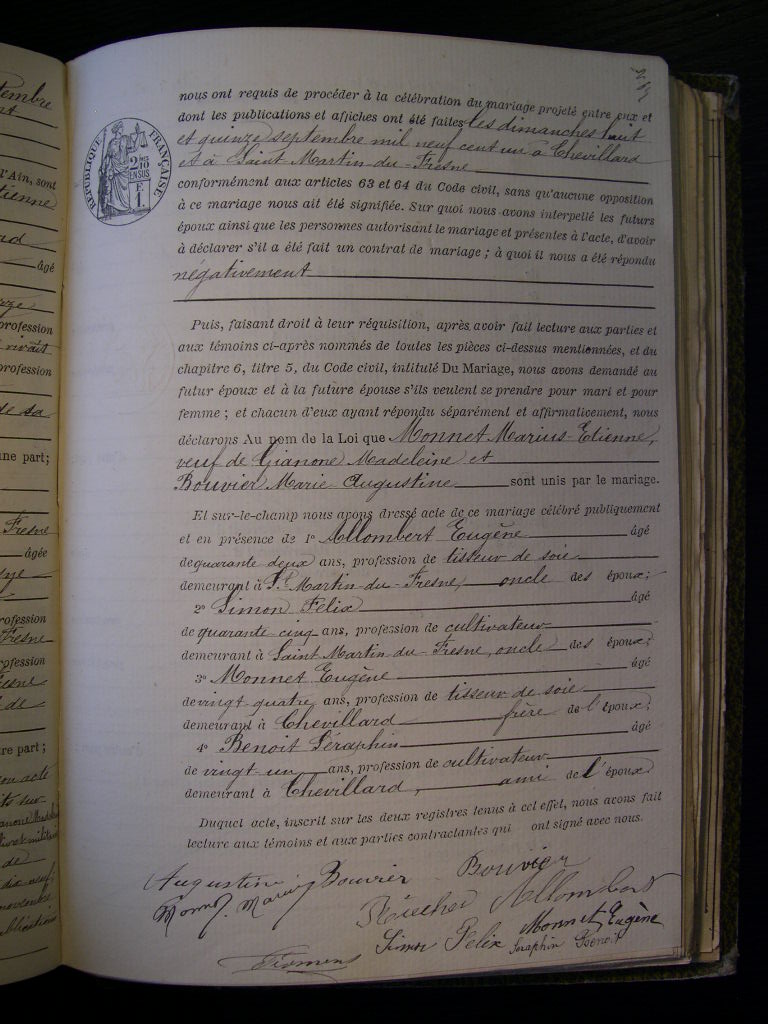 tembre
l'Ain, sont
âgé
profession
profession
de sa
ne part;
Fresne
âgée
rofession
Fresne
ofession
de
re part;
acte
de
RÉPUBLIQUE FRANÇAISE
2/10 EN SUS
F.
1.
nous ont requis de procéder à la célébration du mariage projeté entre eux et
dont les publications et affiches ont été faites les dimanches huit
et quinze septembre mil neuf cent un à Chevillard
et à Saint-Martin-du-Fresne
conformément aux articles 63 et 64 du Code civil, sans qu'aucune opposition
à ce mariage nous ait été signifiée. Sur quoi nous avons interpellé les futurs
époux ainsi que les personnes autorisant le mariage et présentes à l'acte, d'avoir
à déclarer s'il a été fait un contrat de mariage ; à quoi il nous a été répondu
négativement
Puis, faisant droit à leur réquisition, après avoir fait lecture aux parties et
aux témoins ci-après nommés de toutes les pièces ci-dessus mentionnées, et du
chapitre 6, titre 5, du Code civil, intitulé Du Mariage, nous avons demandé au
futur époux et à la future épouse s'ils veulent se prendre pour mari et pour
femme ; et chacun d'eux ayant répondu séparément et affirmativement, nous
déclarons Au nom de la Loi que Monnet Marius-Etienne,
veuf de Gianone Madeleine et
Bouvier Marie Augustine sont unis par le mariage.
Et sur-le-champ nous avons dressé acte de ce mariage célébré publiquement
et en présence de 1° Allombert Eugène âgé
de quarante deux ans, profession de tisseur de soie
demeurant à St Martin-du-Fresne, oncle des époux;
2° Simon Félix âgé
de quarante cinq ans, profession de cultivateur
demeurant à Saint Martin-du-Fresne, oncle des époux;
3° Monnet Eugène âgé
de vingt quatre ans, profession de tisseur de soie
demeurant à Chevillard frère de l'époux;
4° Benoit Séraphin âgé
de vingt un ans, profession de cultivateur
demeurant à Chevillard, ami de l'époux
Duquel acte, inscrit sur les deux registres tenus à cet effet, nous avons fait
lecture aux témoins et aux parties contractantes qui ont signé avec nous.
Augustine Bouvier Bouvier
Monnet Marius Allombert
Simon Félix Monnet Eugène
Séraphin Benoit